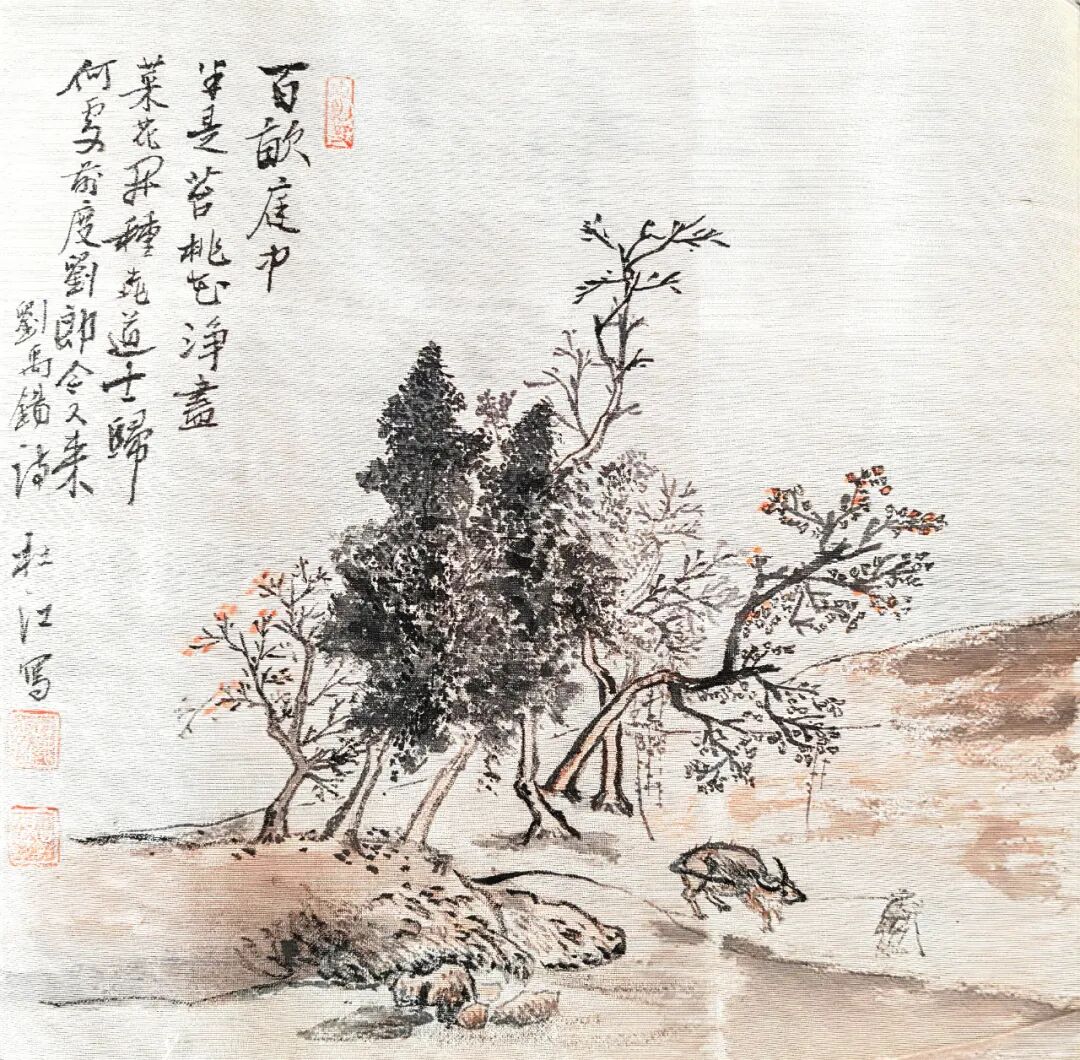 百畝庭中
半是苔桃花淨盡
菜花開種桃道士歸
何處前度劉郎今又来
劉禹錫詩 松江寫